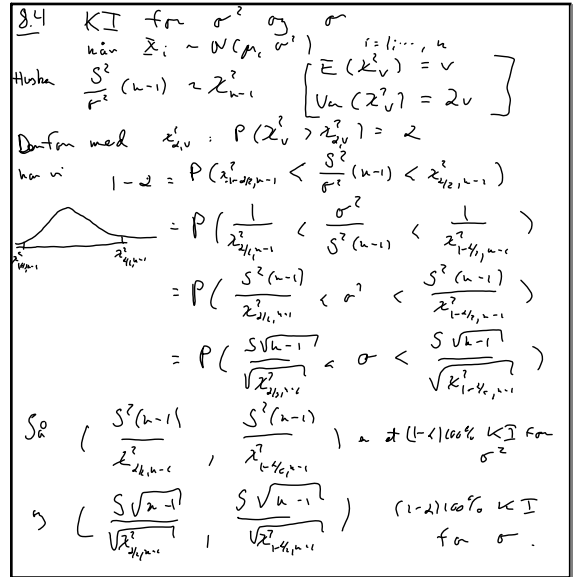 8.4 KI for σ² og σ
når X_i ~ N(μ, σ²) i=1,..., n
Huska S²/σ² (n-1) ~ χ²_{n-1} [ E(χ²_ν) = ν
Var(χ²_ν) = 2ν ]
med χ²_{α,ν} : P(χ²_ν > χ²_{α,ν}) = α
har vi 1-α = P(χ²_{1-α/2,n-1} < S²/σ² (n-1) < χ²_{α/2,n-1})
= P( 1/χ²_{α/2,n-1} < σ²/S²(n-1) < 1/χ²_{1-α/2,n-1} )
χ²_{1-α/2,n-1} χ²_{α/2,n-1}
= P( S²(n-1)/χ²_{α/2,n-1} < σ² < S²(n-1)/χ²_{1-α/2,n-1} )
= P( S√(n-1)/√(χ²_{α/2,n-1}) < σ < S√(n-1)/√(χ²_{1-α/2,n-1}) )
Så ( S²(n-1)/χ²_{α/2,n-1} , S²(n-1)/χ²_{1-α/2,n-1} ) er et (1-α)100% KI for σ²
og ( S√(n-1)/√(χ²_{α/2,n-1}) , S√(n-1)/√(χ²_{1-α/2,n-1}) ) (1-α)100% KI
for σ.